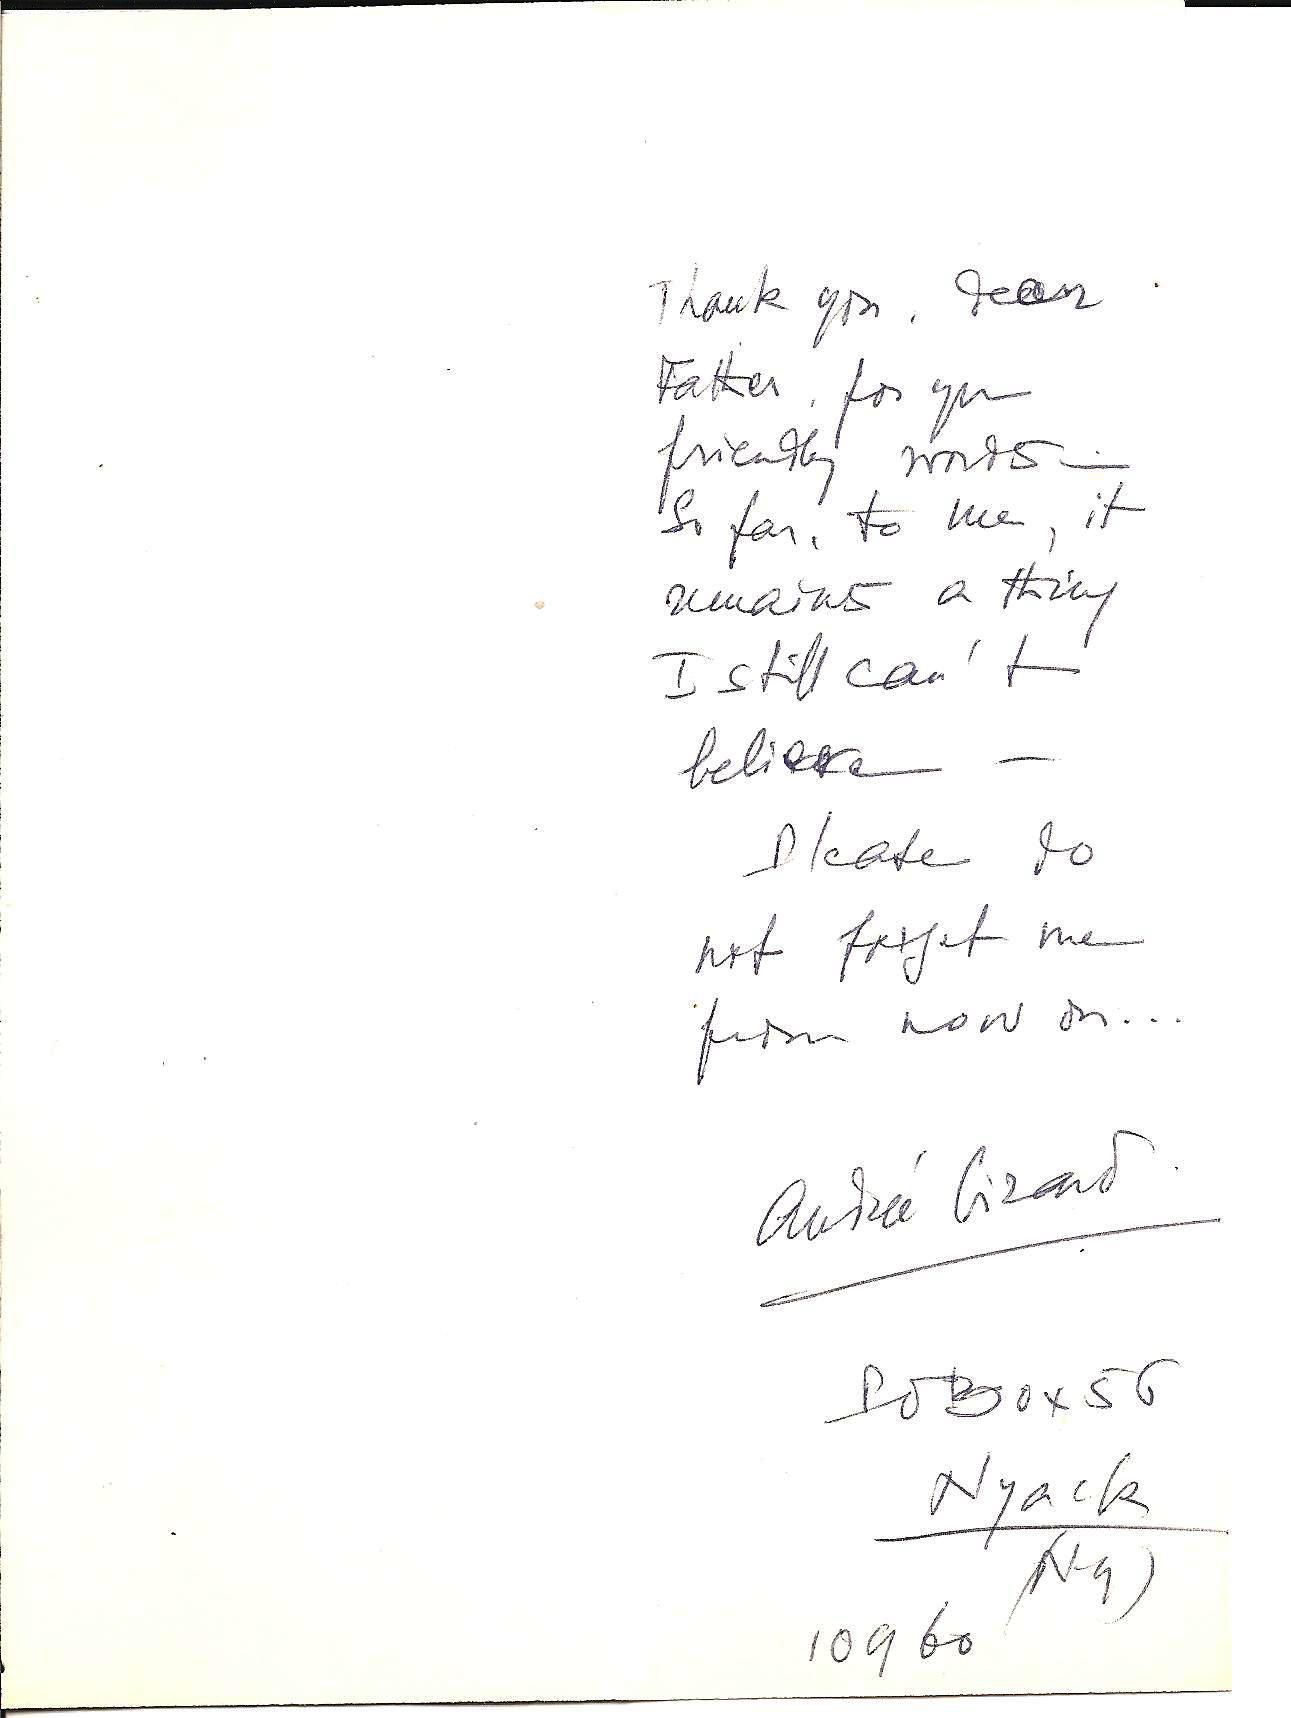 Thank you, dear
Father, for your
friendly words —
So far, to me, it
remains a thing
I still can't
believe —
Please do
not forget me
from now on...
André Girard
PO Box 56
Nyack
(NY)
10960